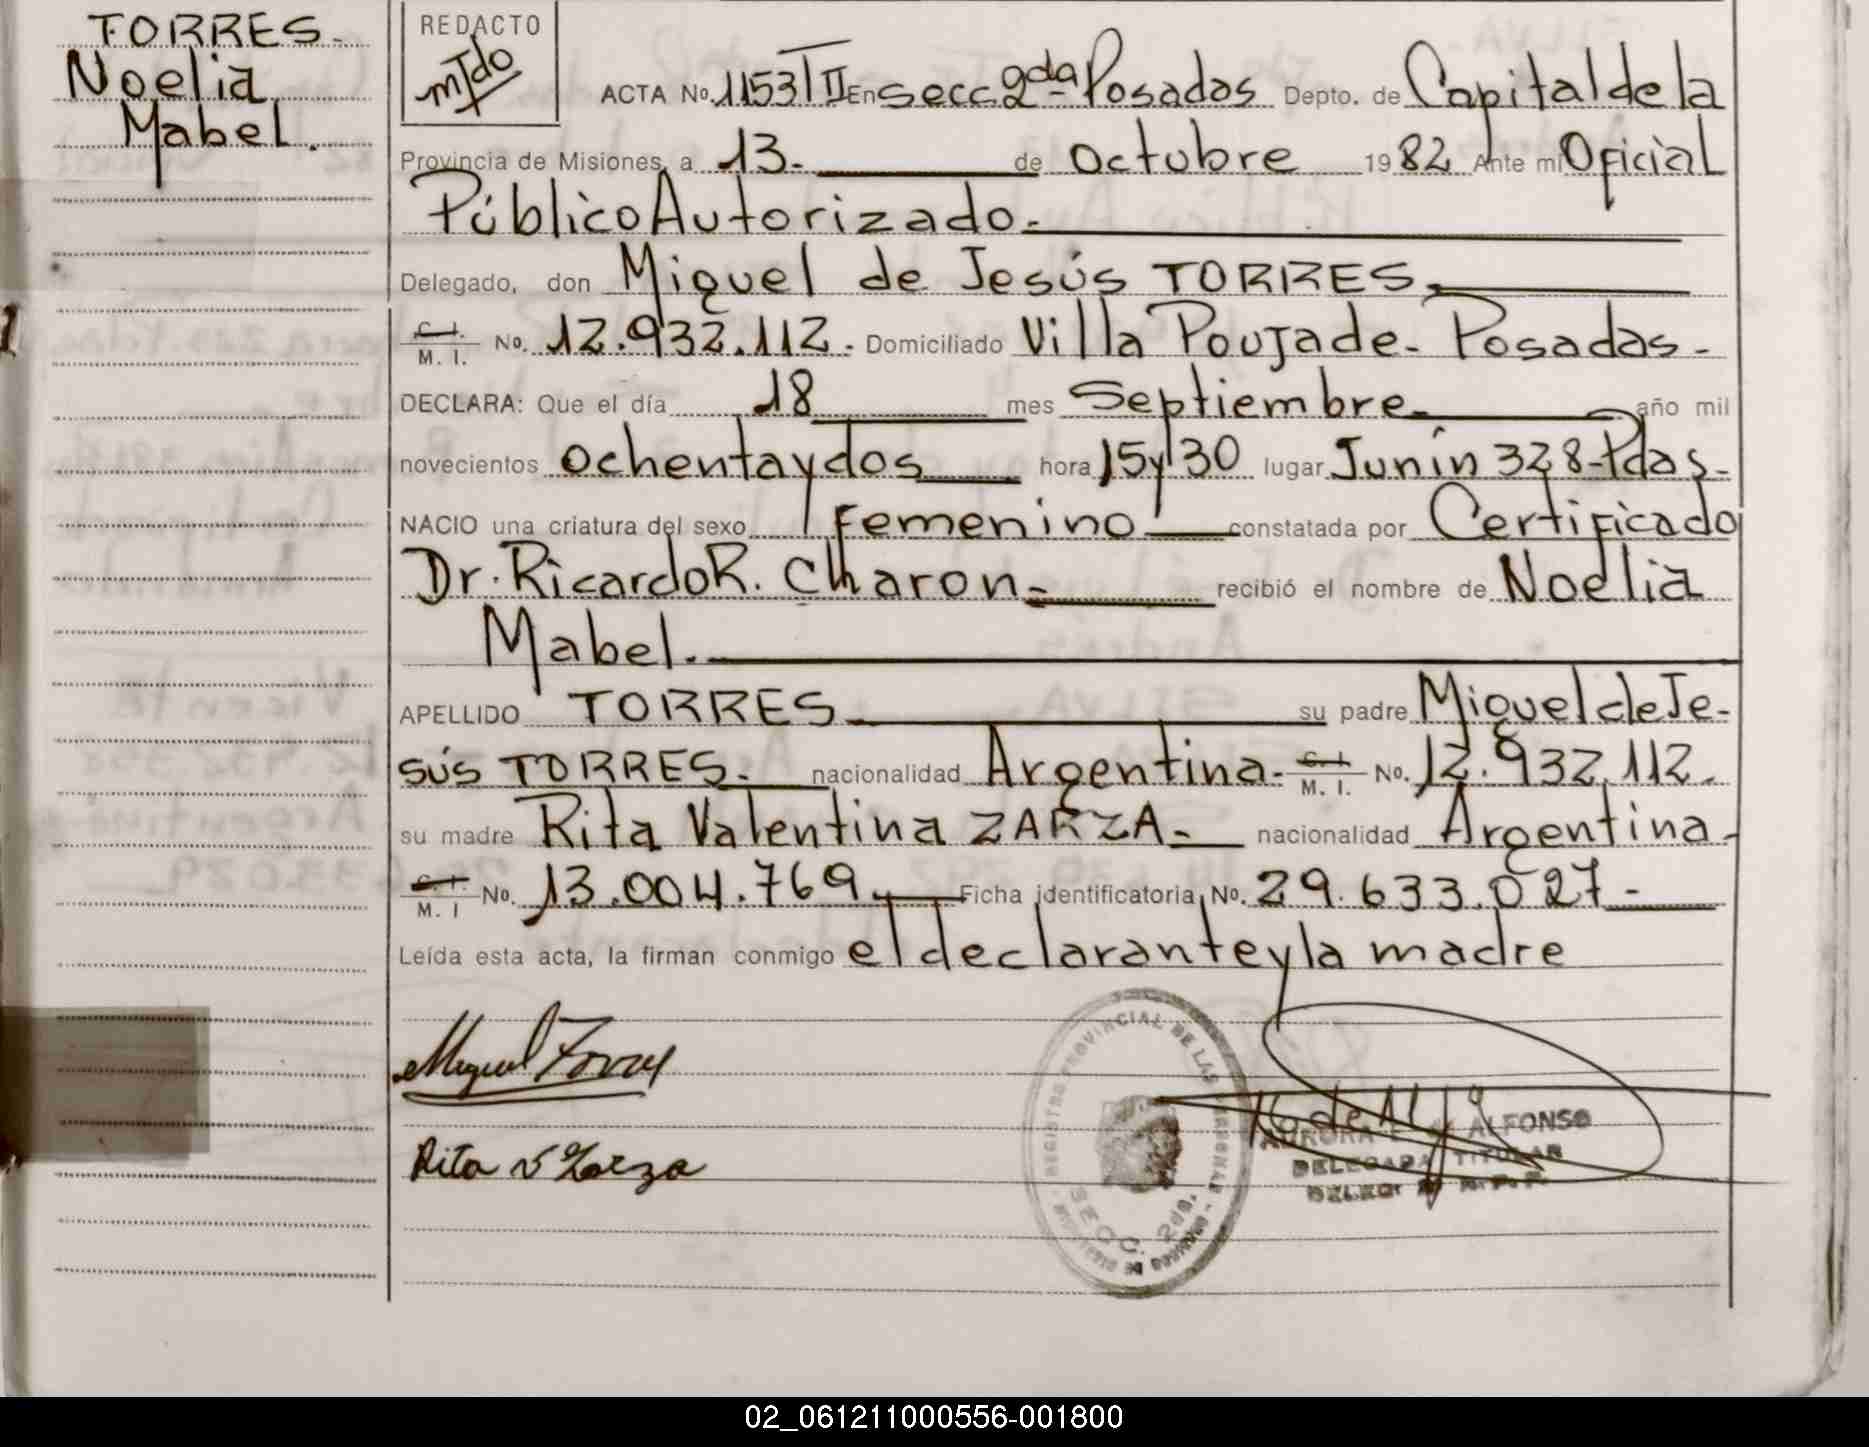 TORRES.
Noelia
Mabel.
REDACTO
ACTA No. 1153 T II En Secc. 2da Posadas Depto. de Capital de la
Provincia de Misiones, a 13. de Octubre 1982 Ante mi Oficial
Público Autorizado.
Delegado, don Miguel de Jesús TORRES.
C. I.
M. I. No. 12.932.112. Domiciliado Villa Poujade. Posadas.
DECLARA: Que el día 18 mes Septiembre año mil
novecientos ochenta y dos hora 15 y 30 lugar Junín 328-Pdas.
NACIO una criatura del sexo femenino constatada por Certificado
Dr. Ricardo R. Charon. recibió el nombre de Noelia
Mabel.
APELLIDO TORRES su padre Miguel de Je-
sús TORRES. nacionalidad Argentina. C. I. M. I. No. 12.932.112.
su madre Rita Valentina ZARZA. nacionalidad Argentina.
C. I. M. I No. 13.004.769. Ficha identificatoria, No. 29.633.027-
Leída esta acta, la firman conmigo el declarante y la madre
Miguel Torres
REGISTRO PROVINCIAL DE LAS PERSONAS
SECC. 2da.
AURORA ALFONSO
DELEGADA TITULAR
Rita V Zarza
02_061211000556-001800